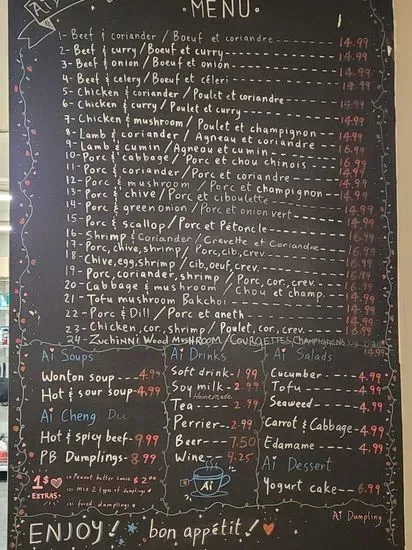 Ai
·MENU·
1- Beef & coriander / Boeuf et coriandre ---- 14.99
2- Beef & curry / Boeuf et curry ---- 14.99
3- Beef & onion / Boeuf et onion ---- 14.99
4- Beef & celery / Boeuf et céleri ---- 14.99
5- Chicken & coriander / Poulet et coriandre ---- 14.99
6- Chicken & curry / Poulet et curry ---- 14.99
7- Chicken & mushroom / Poulet et champignon 14.99
8- Lamb & coriander / Agneau et coriandre 16.99
9- Lamb & cumin / Agneau et cumin ---- 16.99
10- Porc & cabbage / Porc et chou chinois -- 14.99
11- Porc & coriander / Porc et coriandre ---- 14.99
12- Porc & mushroom / Porc et champignon 14.99
13- Porc & chive / Porc et ciboulette ---- 14.99
14- Porc & green onion / Porc et onion vert ---- 14.99
15- Porc & scallop / Porc et Pétoncle ---- 16.99
16- Shrimp & Coriander / Crevette et Coriandre
17- Porc, chive, shrimp / Porc, cib, crev.
18- Chive, egg, shrimp / cib, oeuf, crev.
19- Porc, coriander, shrimp / Porc, cor, crev.
20- Cabbage & mushroom / Chou et champ.
21- Tofu mushroom Bakchoi ---- 14.99
22- Porc & Dill / Porc et aneth ---- 14.99
23- Chicken, cor, shrimp / Poulet, cor, crev. 16.99
24- Zuchinni Wood Mushroom / Courgettes, Champignons
14.99
Ai Soups
Wonton soup ---- 4.99
Hot & sour soup - 4.99
Ai Cheng Du
Hot & spicy beef - 9.99
PB Dumplings - 8.99
1$ EXTRAS
Peanut butter sauce $2.00
mix 2 types of dumplings
fried dumplings
Ai Drinks
Soft drink - 1.99
Soy milk - 2.99
Homemade
Tea ---- 2.99
Perrier -- 2.99
Beer ---- 7.50
Wine -- 9.25
Ai
Ai Salads
Cucumber ---- 4.99
Tofu ---- 4.99
Seaweed ---- 4.99
Carrot & Cabbage - 4.99
Edamame ---- 4.99
Ai Dessert
Yogurt cake --- 6.99
Ai Dumpling
ENJOY! bon appétit!